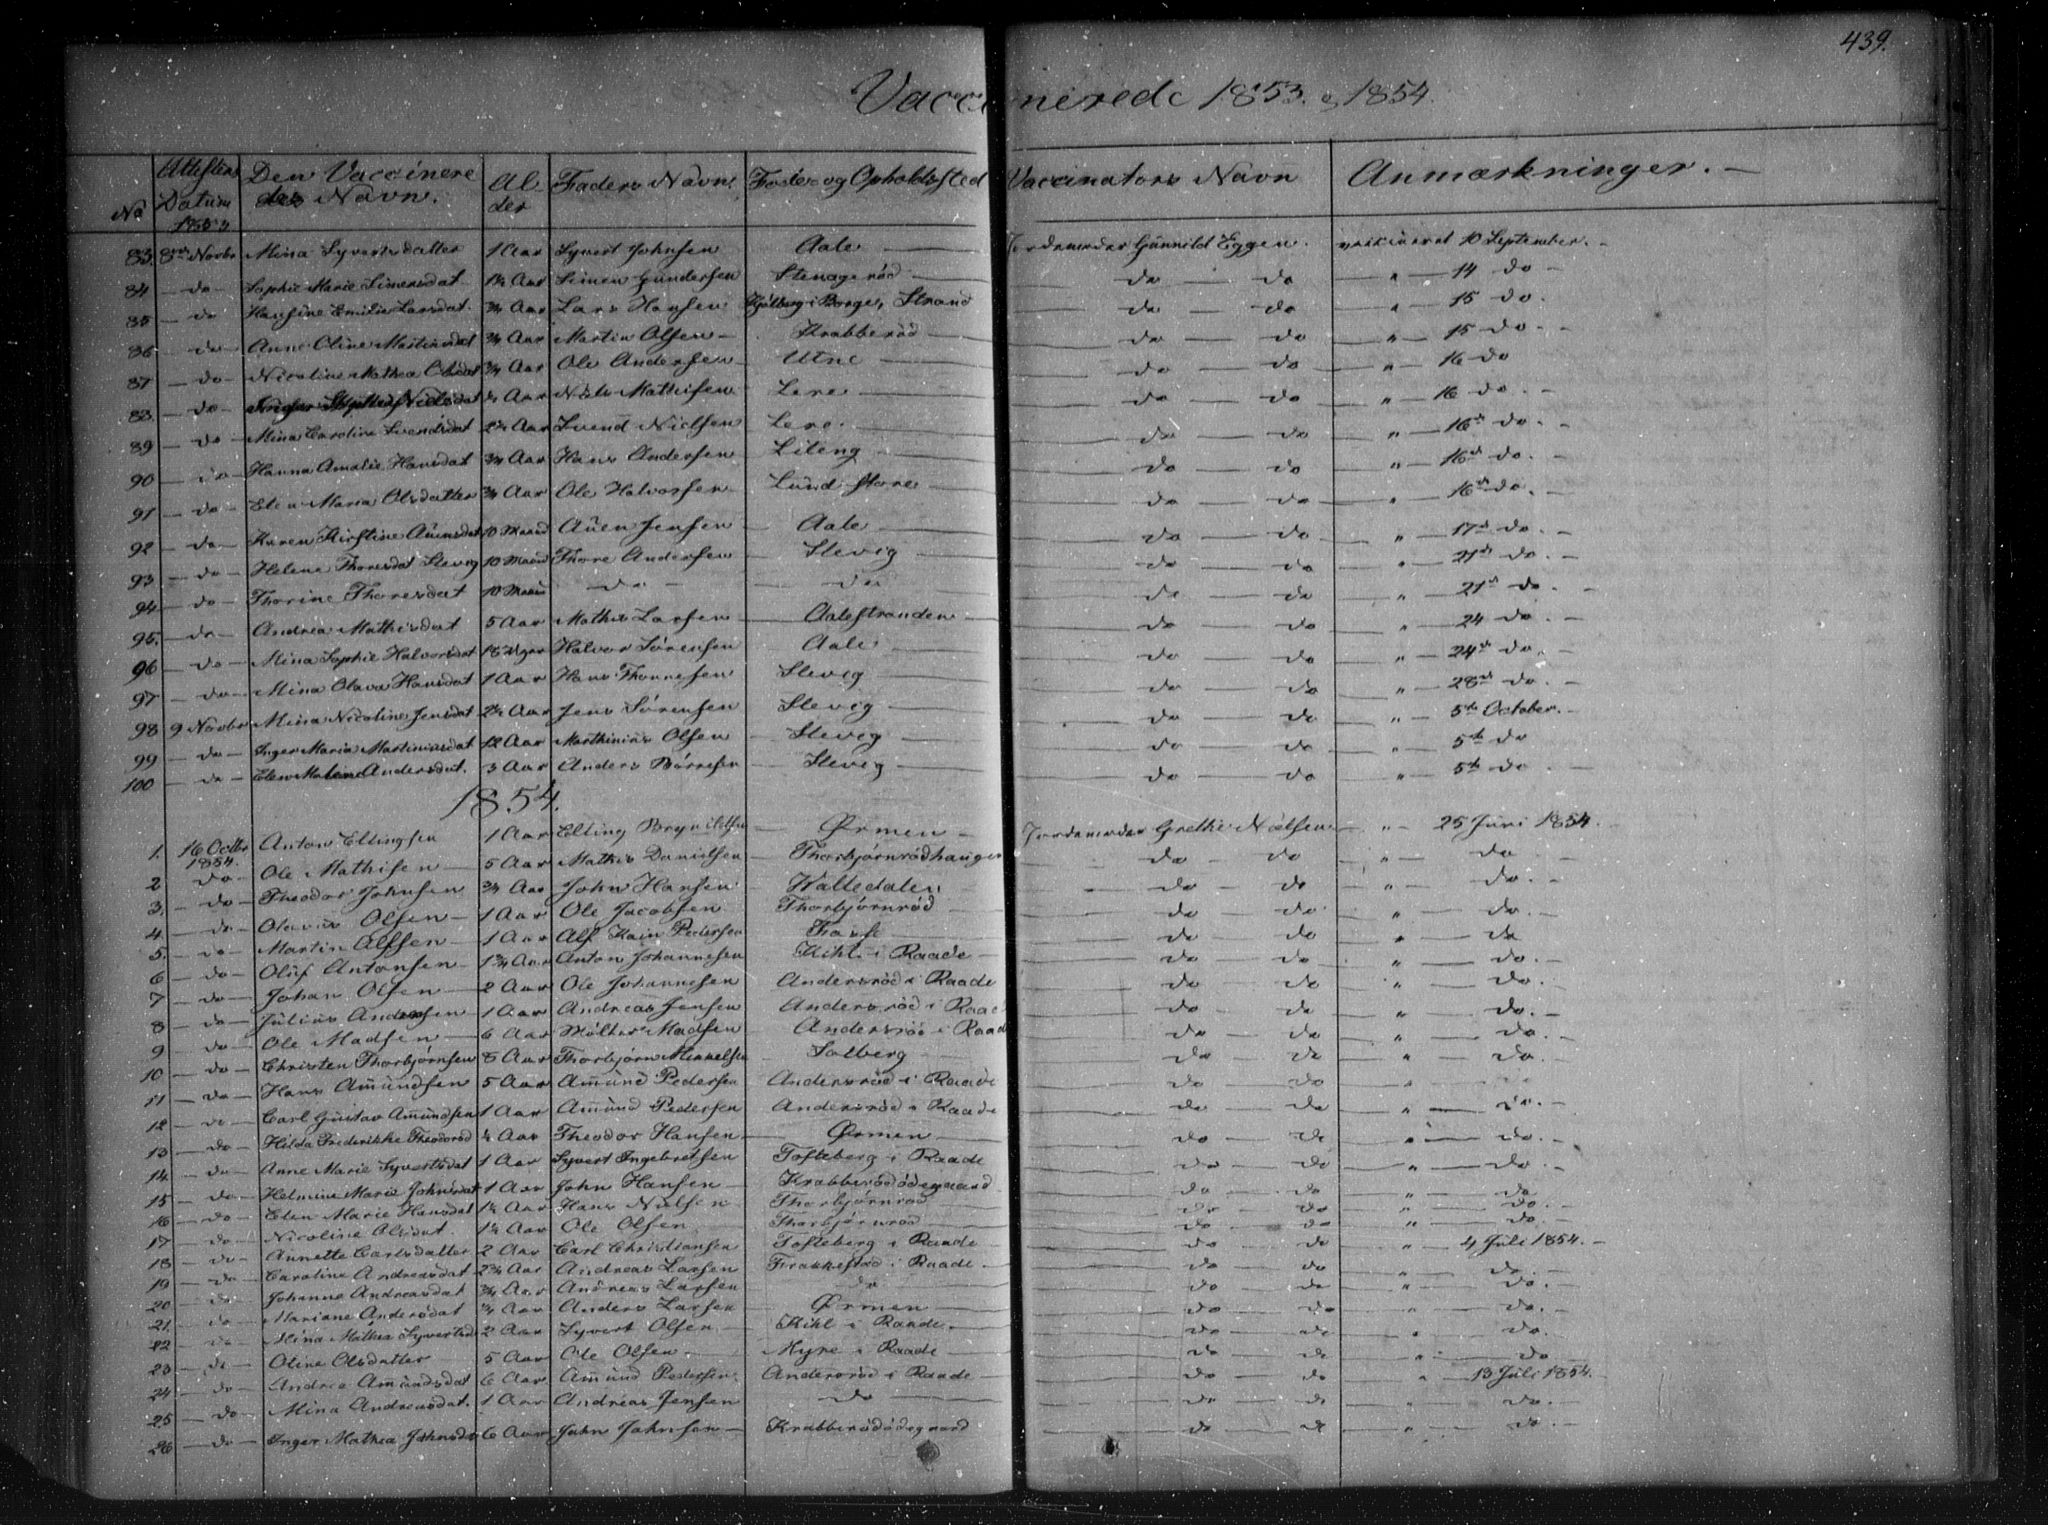 439.
Vaccinerede 1853. og 1854.
No | Attestens Datum 1853 | Den Vaccineredes Navn. | Alder | Faders Navn. | Føde- og Opholdssted | Vaccinators Navn | Anmærkninger. —
83. 8de Novbr Mina Syvertsdatter 1 Aar Syvert Johnsen Aale — Jordemoder Gunnild Eggen. vaccineret 10 September. —
84 — do — Sophie Marie Simensdat 1¼ Aar Simen Gundersen Stenagerød — do — do " — 14 do —
85 — do Hansine Emilie Larsdat. ¾ Aar Lars Hansen Kjølberg i Borge, Strand — do — do " — 15 do.
86 — do — Anne Oline Martinsdat ¾ Aar Martin Olsen — Krabberød — do — do " — 15 do. —
87 — do — Nicoline Mathea Olsdat ¾ Aar Ole Andersen — Utne — do — do " — 16 do
88. — do — Nielsdat Aar Niels Mathisen — Lere — do — do " — 16 do. —
89 — do — Mina Caroline Svendsdat 2¼ Aar Svend Nielsen Lere. — do — do " — 16de do. —
90 — do — Hanna Amalie Hansdat ¾ Aar Hans Andersen — Liteng — do — do " — 16de do. —
91 — do — Elen Maria Olsdatter ¾ Aar Ole Halvorsen — Lund store — do — do " — 16de do. —
92 — do — Karen Kirstine Auensdat 10 Maaned Auen Jensen — Aale — do — do " — 17de do. —
93 — do — Helene Thoresdat Slevig 10 Maaned Thore Andersen Slevig — do — do " — 21de do. —
94 — do — Thorine Thoresdat 10 Maaned — do — — do — — do — do " — 21de do. —
95. — do — Andrea Mathisdat 5 Aar Mathis Larsen — Aalestranden — do — do " — 24 do. —
96 — do — Mina Sophie Halvorsdat 18 Uger Halvor Sørensen Aale — do — do " — 24de do. —
97 — do — Mina Olava Hansdat 1 Aar Hans Thoresen Slevig — do — do " — 28de do. —
98 9 Novbr Mina Nicoline Jensdat 2½ Aar Jens Sørensen Slevig — do — do " — 5te October. —
99 — do — Inger Maria Martiniusdat 12 Aar Marthinius Olsen — Slevig — do — do " — 5te do
100 — do — Elen Maline Andersdat. 3 Aar Anders Børresen — Slevig — do — do " — 5te do. —
1854.
1. 16 Octbr 1854. Anton Ellingsen 1 Aar Elling Brynildsen — Ørmen — Jordemoder Grethe Nielsen — " — 25 Juni 1854.
2 — do — Ole Mathisen — 5 Aar Mathis Danielsen — Thorbjørnrødhaugen do — do " — do. —
3. — do — Theodor Johnsen ¾ Aar John Hansen — Kalledalen do — do " — do. —
4. — do — Olavus Olsen — 1 Aar Ole Jacobsen Thorbjørnrød — do — do " — do. —
5. — do — Martin Alfsen — 1 Aar Alf Kain Pedersen — do — do " — do
6 — do — Oluf Antonsen — 1¾ Aar Anton Johannesen Kihl i Raade — do — do " — do. —
7 — do — Johan Olsen — 2 Aar Ole Johannesen Andersrød i Raade do — do " — do. —
8 — do — Julius Andreasen 1 Aar Andreas Jensen Andersrød i Raade do — do " — do. —
9 — do — Ole Madsen — 6 Aar Madsen Andersrød i Raade do — do " — do. —
10 — do — Christen Thorbjørnsen 8 Aar Thorbjørn Mikkelsen Solberg — do — do " — do. —
11 — do — Hans Amundsen 5 Aar Amund Pedersen Andersrød i Raade do — do " — do
12 — do — Carl Gustav Amundsen 1 Aar Amund Pedersen Andersrød i Raade do — do " — do. —
13 — do — Hilda Frederikke Theodorsd ¼ Aar Theodor Hansen — Ørmen — do — do " — do. —
14. — do — Anne Marie Syvertsdat 1 Aar Syvert Ingebretsen Tofteberg i Raade do — do " — do. —
15 — do — Helmine Marie Johnsdat 1 Aar John Hansen — Krabberødødegaard do — do " — do
16 — do — Elen Marie Hansdat 1¼ Aar Hans Nielsen Thorbjørnrød — do — do " — do. —
17 — do — Nicoline Olsdat. 1¼ Aar Ole Olsen Thorbjørnrød — do — do " — do. —
18 — do — Annette Carlsdatter 2 Aar Carl Christiansen Tofteberg i Raade do — do " — 4 Juli 1854. —
19 — do — Caroline Andreasdat 2¾ Aar Andreas Larsen Frakkestad i Raade. — do — do " — do. —
20 — do — Johanne Andreasdat ¾ Aar Andreas Larsen — do — do — do " — do. —
21. — do — Mariane Andersdat ¾ Aar Anders Larsen — Ørmen — do — do " — do. —
22 — do — Mina Mathea Syvertsd 2 Aar Syvert Olsen — Kihl i Raade. — do — do " — do.
23 — do — Oline Olsdatter 5 Aar Ole Olsen — Myre i Raade — do — do " — do
24 — do — Andrea Amundsdat 6 Aar Amund Pedersen Andersrød i Raade — do — do " — 13 Juli 1854. —
25 — do — Mina Andreasdat. 1 Aar Andreas Jensen — do — do — do " — do. —
26 — do — Inger Mathea Johnsdat 6 Aar John Johnsen — Krabberødødegaard do — do " — do. —